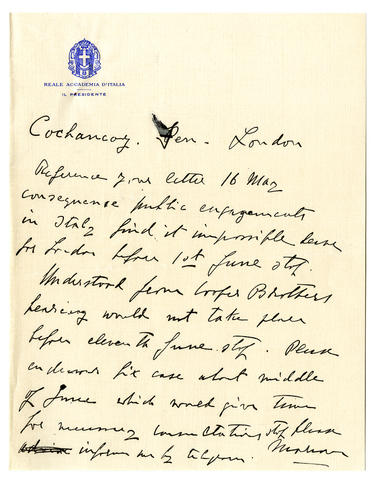 REALE ACCADEMIA D'ITALIA
IL PRESIDENTE
Cochancoy. Pen. London
Reference your letter 16 May
consequence public engagements
in Italy find it impossible leave
for London before 1st June stop.
Understood from Cooper Brothers
hearing would not take place
before eleventh June stop. Please
endeavour fix case about middle
of June which would give time
for necessary consultations stop Please
inform me by telegram. Marconi